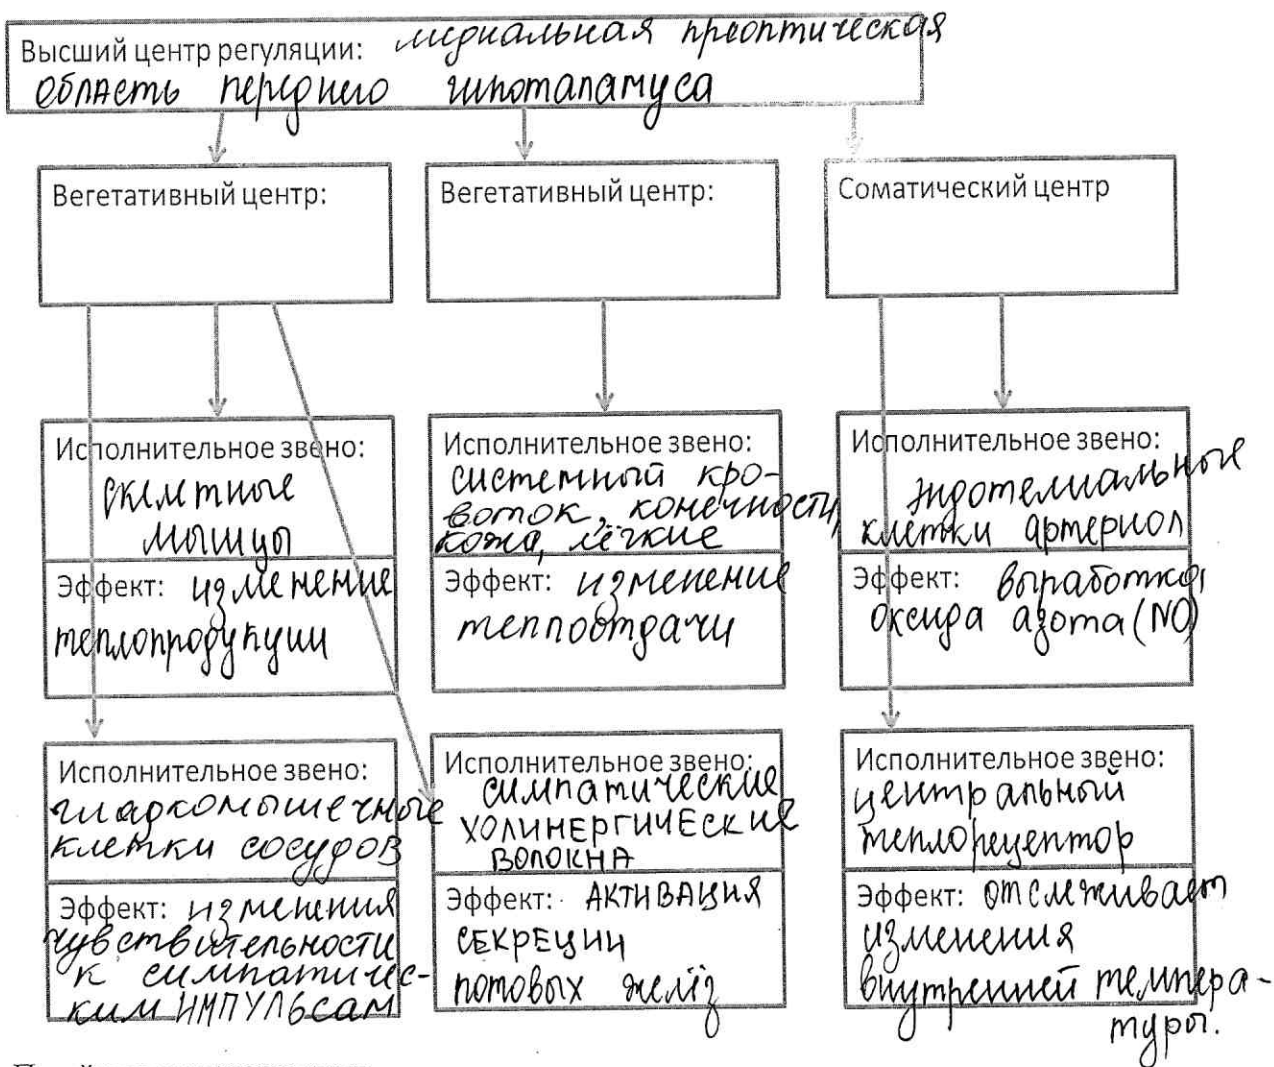 Высший центр регуляции: медиальная преоптическая
область переднего гипоталамуса
Вегетативный центр:
Вегетативный центр:
Соматический центр
Исполнительное звено:
скелетные
мышцы
Эффект: изменение
теплопродукции
Исполнительное звено:
системный кро-
воток, конечности,
кожа, лёгкие
Эффект: изменение
теплоотдачи
Исполнительное звено:
эндотелиальные
клетки артериол
Эффект: выработка
оксида азота (NO)
Исполнительное звено:
гладкомышечные
клетки сосудов
Эффект: изменения
чувствительности
к симпатичес-
ким импульсам
Исполнительное звено:
симпатические
холинергические
волокна
Эффект: активация
секреции
потовых желёз
Исполнительное звено:
центральный
теплорецептор
Эффект: отслеживает
изменения
внутренней темпера-
туры.